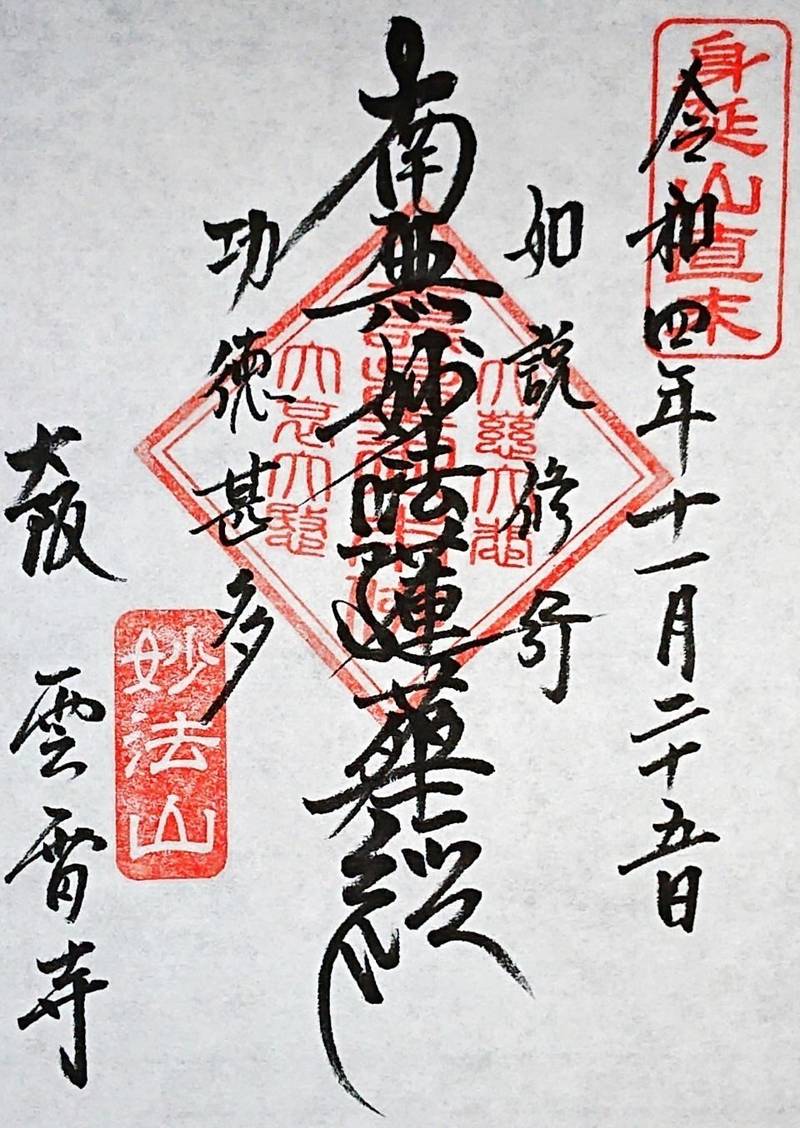 身延山直末
令和四年十一月二十五日
如説修行
大慈大悲
南無妙法蓮華経
功徳甚多
妙法山
大阪
雲雷寺